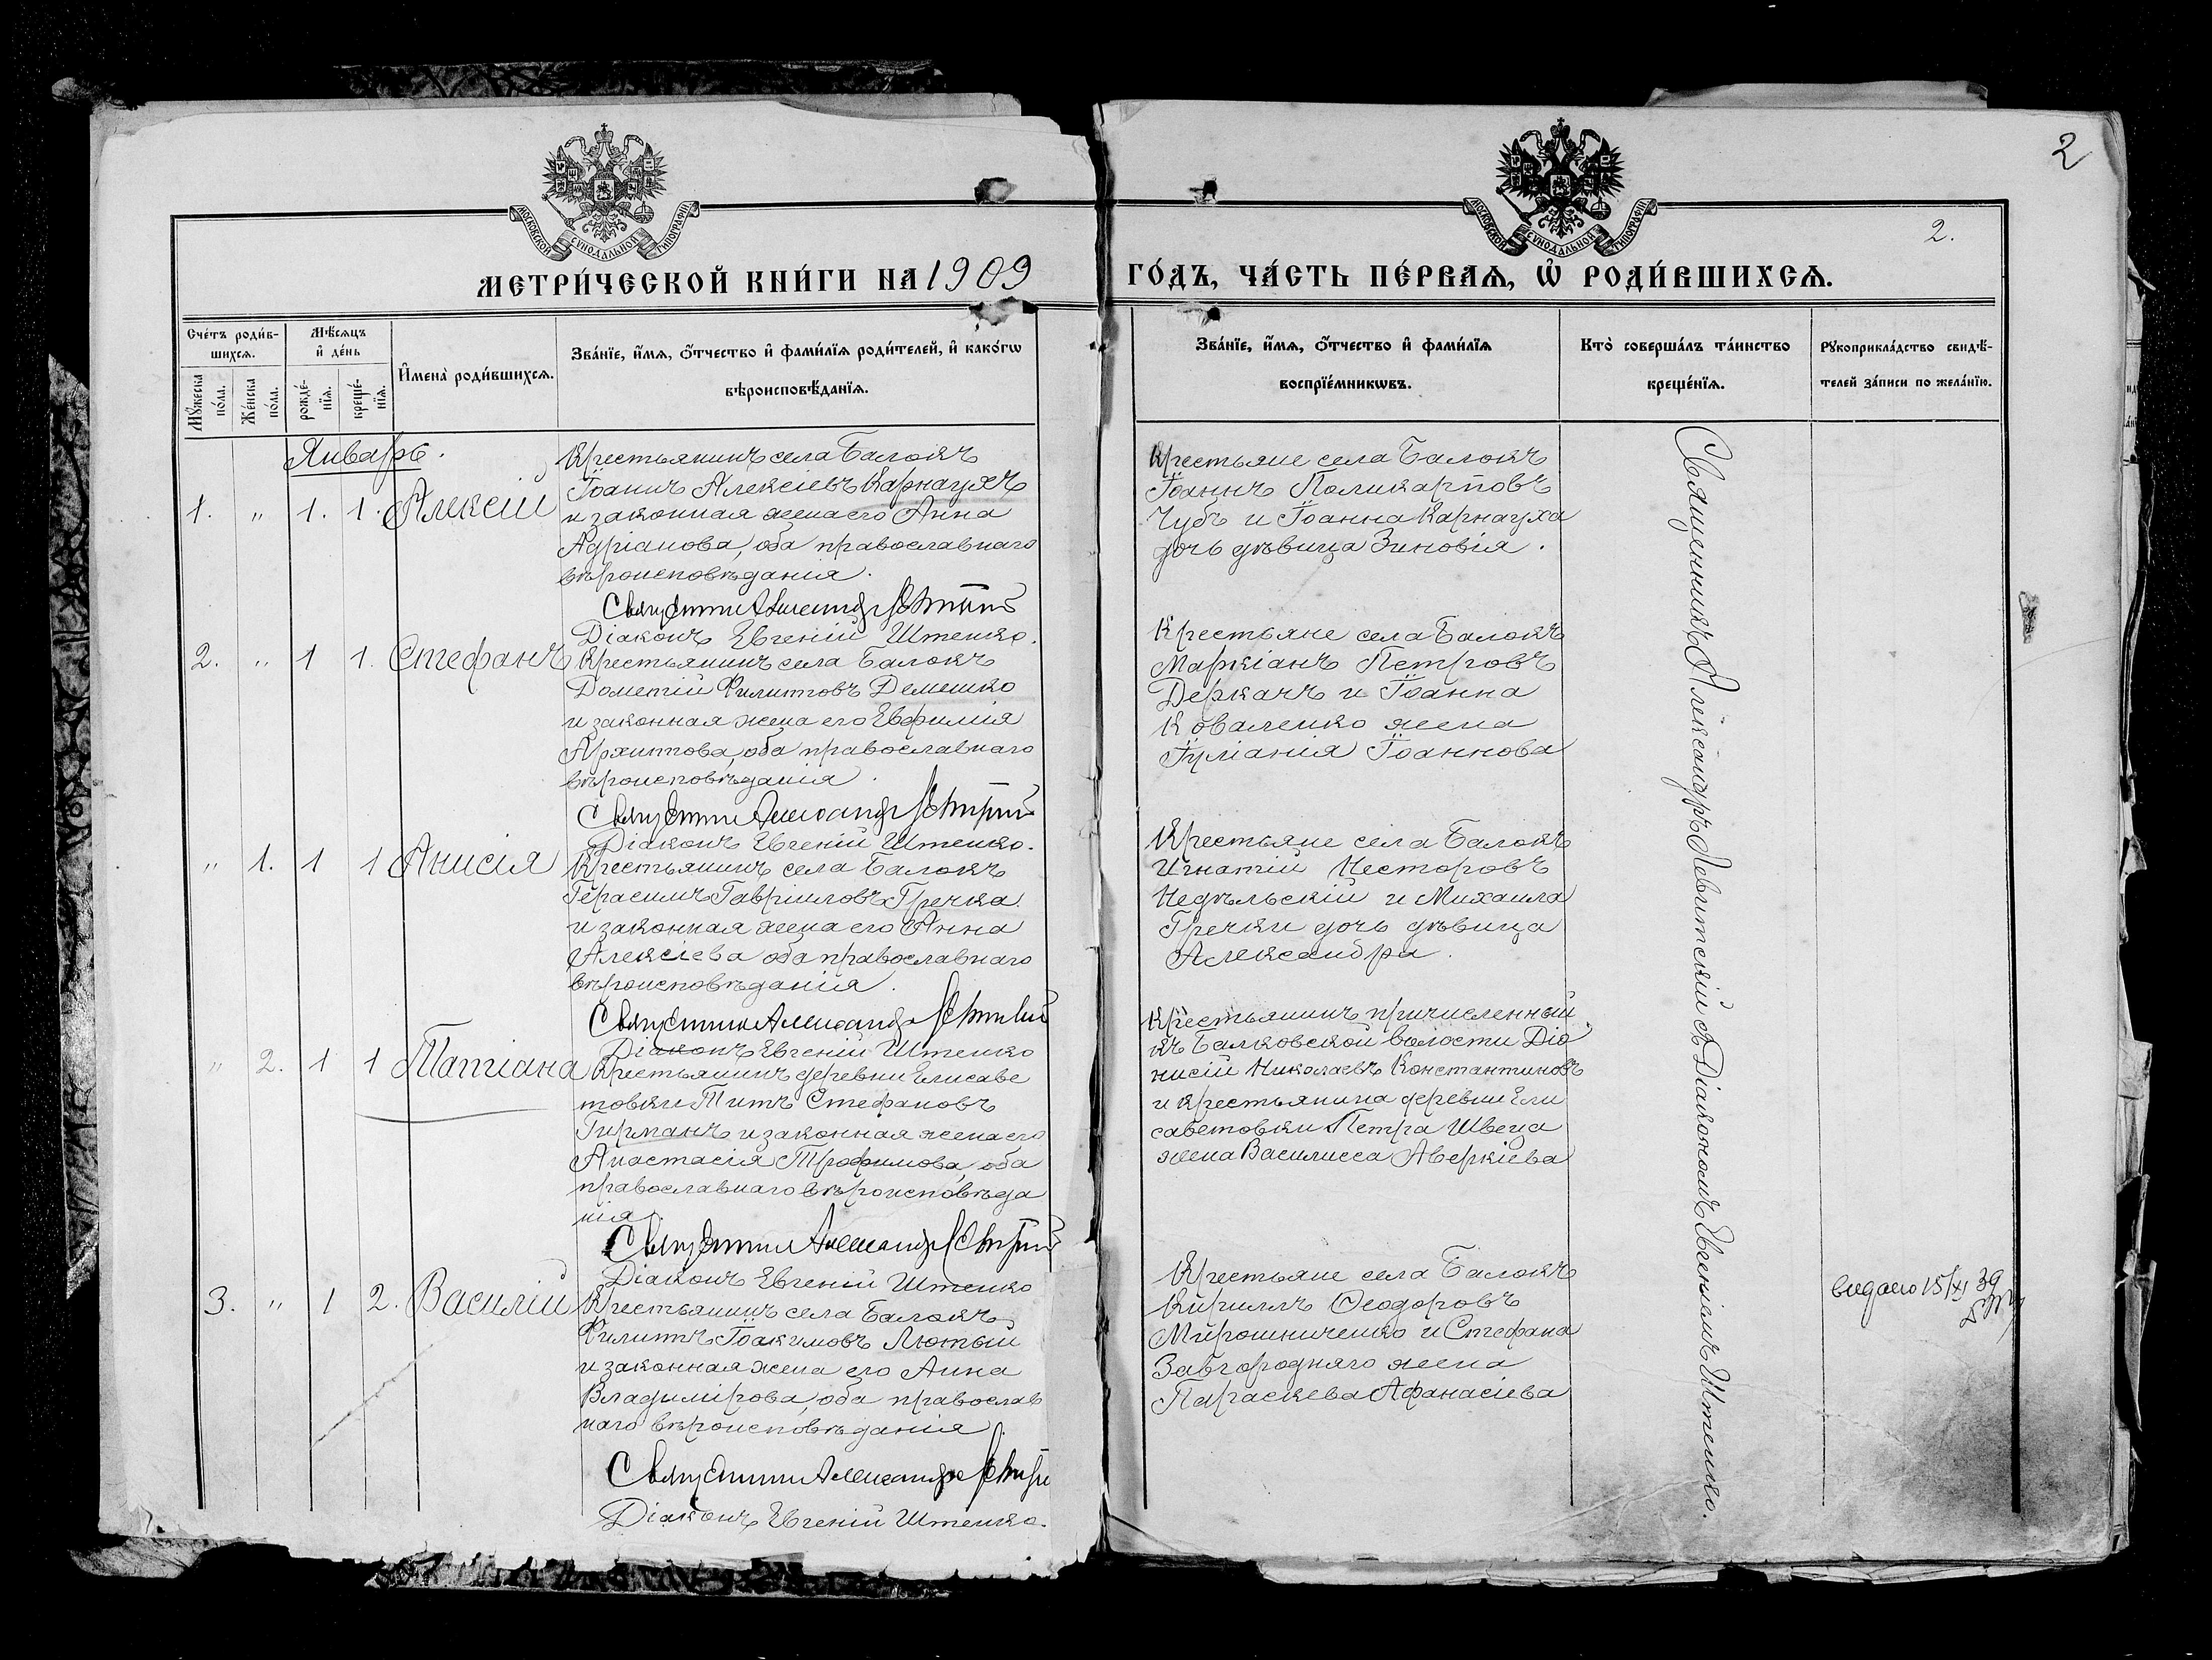 2
МОСКОВСКОЙ СѴНОДАЛЬНОЙ ТИПОГРАФІИ
МОСКОВСКОЙ СѴНОДАЛЬНОЙ ТИПОГРАФІИ
2.
МЕТРИ́ЧЕСКОЙ КНИ́ГИ НА 1909
ГО́ДЪ, ЧА́СТЬ ПЕ́РВАѦ, Ѽ РОДИ́ВШИХСѦ.
Сче́тъ роди́в-
шихсѧ.
Мѣ́сѧцъ
и҆ де́нь
Мꙋ́жеска по́ла.
Же́нска по́ла.
рожде́-
нїѧ.
креще́-
нїѧ.
И҆мена̀ роди́вшихсѧ.
Зва́нїе, и҆́мѧ, ѻ҆́тчество и҆ фами́лїѧ роди́телей, и҆ како́гѡ
вѣроисповѣ́данїѧ.
Зва́нїе, и҆́мѧ, ѻ҆́тчество и҆ фами́лїѧ
воспрїе́мникѡвъ.
Кто̀ соверша́лъ та́инство
креще́нїѧ.
Рꙋкоприкла́дство свидѣ́-
телей за́писи по жела́нїю.
Январь.
1. " 1. 1. Алексій
Крестьянинъ села Балокъ
Іоаннъ Алексіевъ Карнаухъ
и законная жена его Анна
Адріанова, оба православнаго
вѣроисповѣданія.
Священникъ Александръ Левитскій
Діаконъ Евгеній Штенко.
Крестьяне села Балокъ
Іоаннъ Поликарповъ
Чубъ и Іоанна Карнауха
дочь дѣвица Зиновія.
2. " 1 1. Стефанъ
Крестьянинъ села Балокъ
Дометій Филипповъ Демешко
и законная жена его Евфимія
Архиппова, оба православнаго
вѣроисповѣданія.
Священникъ Александръ Левитскій
Діаконъ Евгеній Штенко.
Крестьяне села Балокъ
Маркіанъ Петровъ
Деркачъ и Іоанна
Коваленко жена
Іуліанія Іоаннова
" 1. 1 1 Анисія
Крестьянинъ села Балокъ
Герасимъ Гавріиловъ Гречка
и законная жена его Анна
Алексіева оба православнаго
вѣроисповѣданія.
Священникъ Александръ Левитскій
Діаконъ Евгеній Штенко
Крестьяне села Балокъ
Игнатій Несторовъ
Недѣльскій и Михаила
Гречки дочь дѣвица
Александра.
" 2. 1 1 Татіана
Крестьянинъ деревни Елисаве
товки Титъ Стефановъ
Гирманъ и законная жена его
Анастасія Трофимова, оба
православнаго вѣроисповѣда
нія.
Священникъ Александръ Левитскій
Діаконъ Евгеній Штенко
Крестьянинъ причисленный
къ Балковской волости Діо
нисій Николаевъ Константиновъ
и крестьянина деревни Ели
саветовки Петра Швеца
жена Василисса Аверкіева
3. " 1 2. Василій
Крестьянинъ села Балокъ
Филиппъ Іоакимовъ Лютый
и законная жена его Анна
Владимірова, оба православ
наго вѣроисповѣданія.
Священникъ Александръ Левитскій
Діаконъ Евгеній Штенко.
Крестьяне села Балокъ
Кириллъ Ѳеодоровъ
Мирошниченко и Стефана
Завгородняго жена
Параскева Афанасіева
Священникъ Александръ Левитскій съ Діакономъ Евгеніемъ Штенко.
видано 15/XI 39